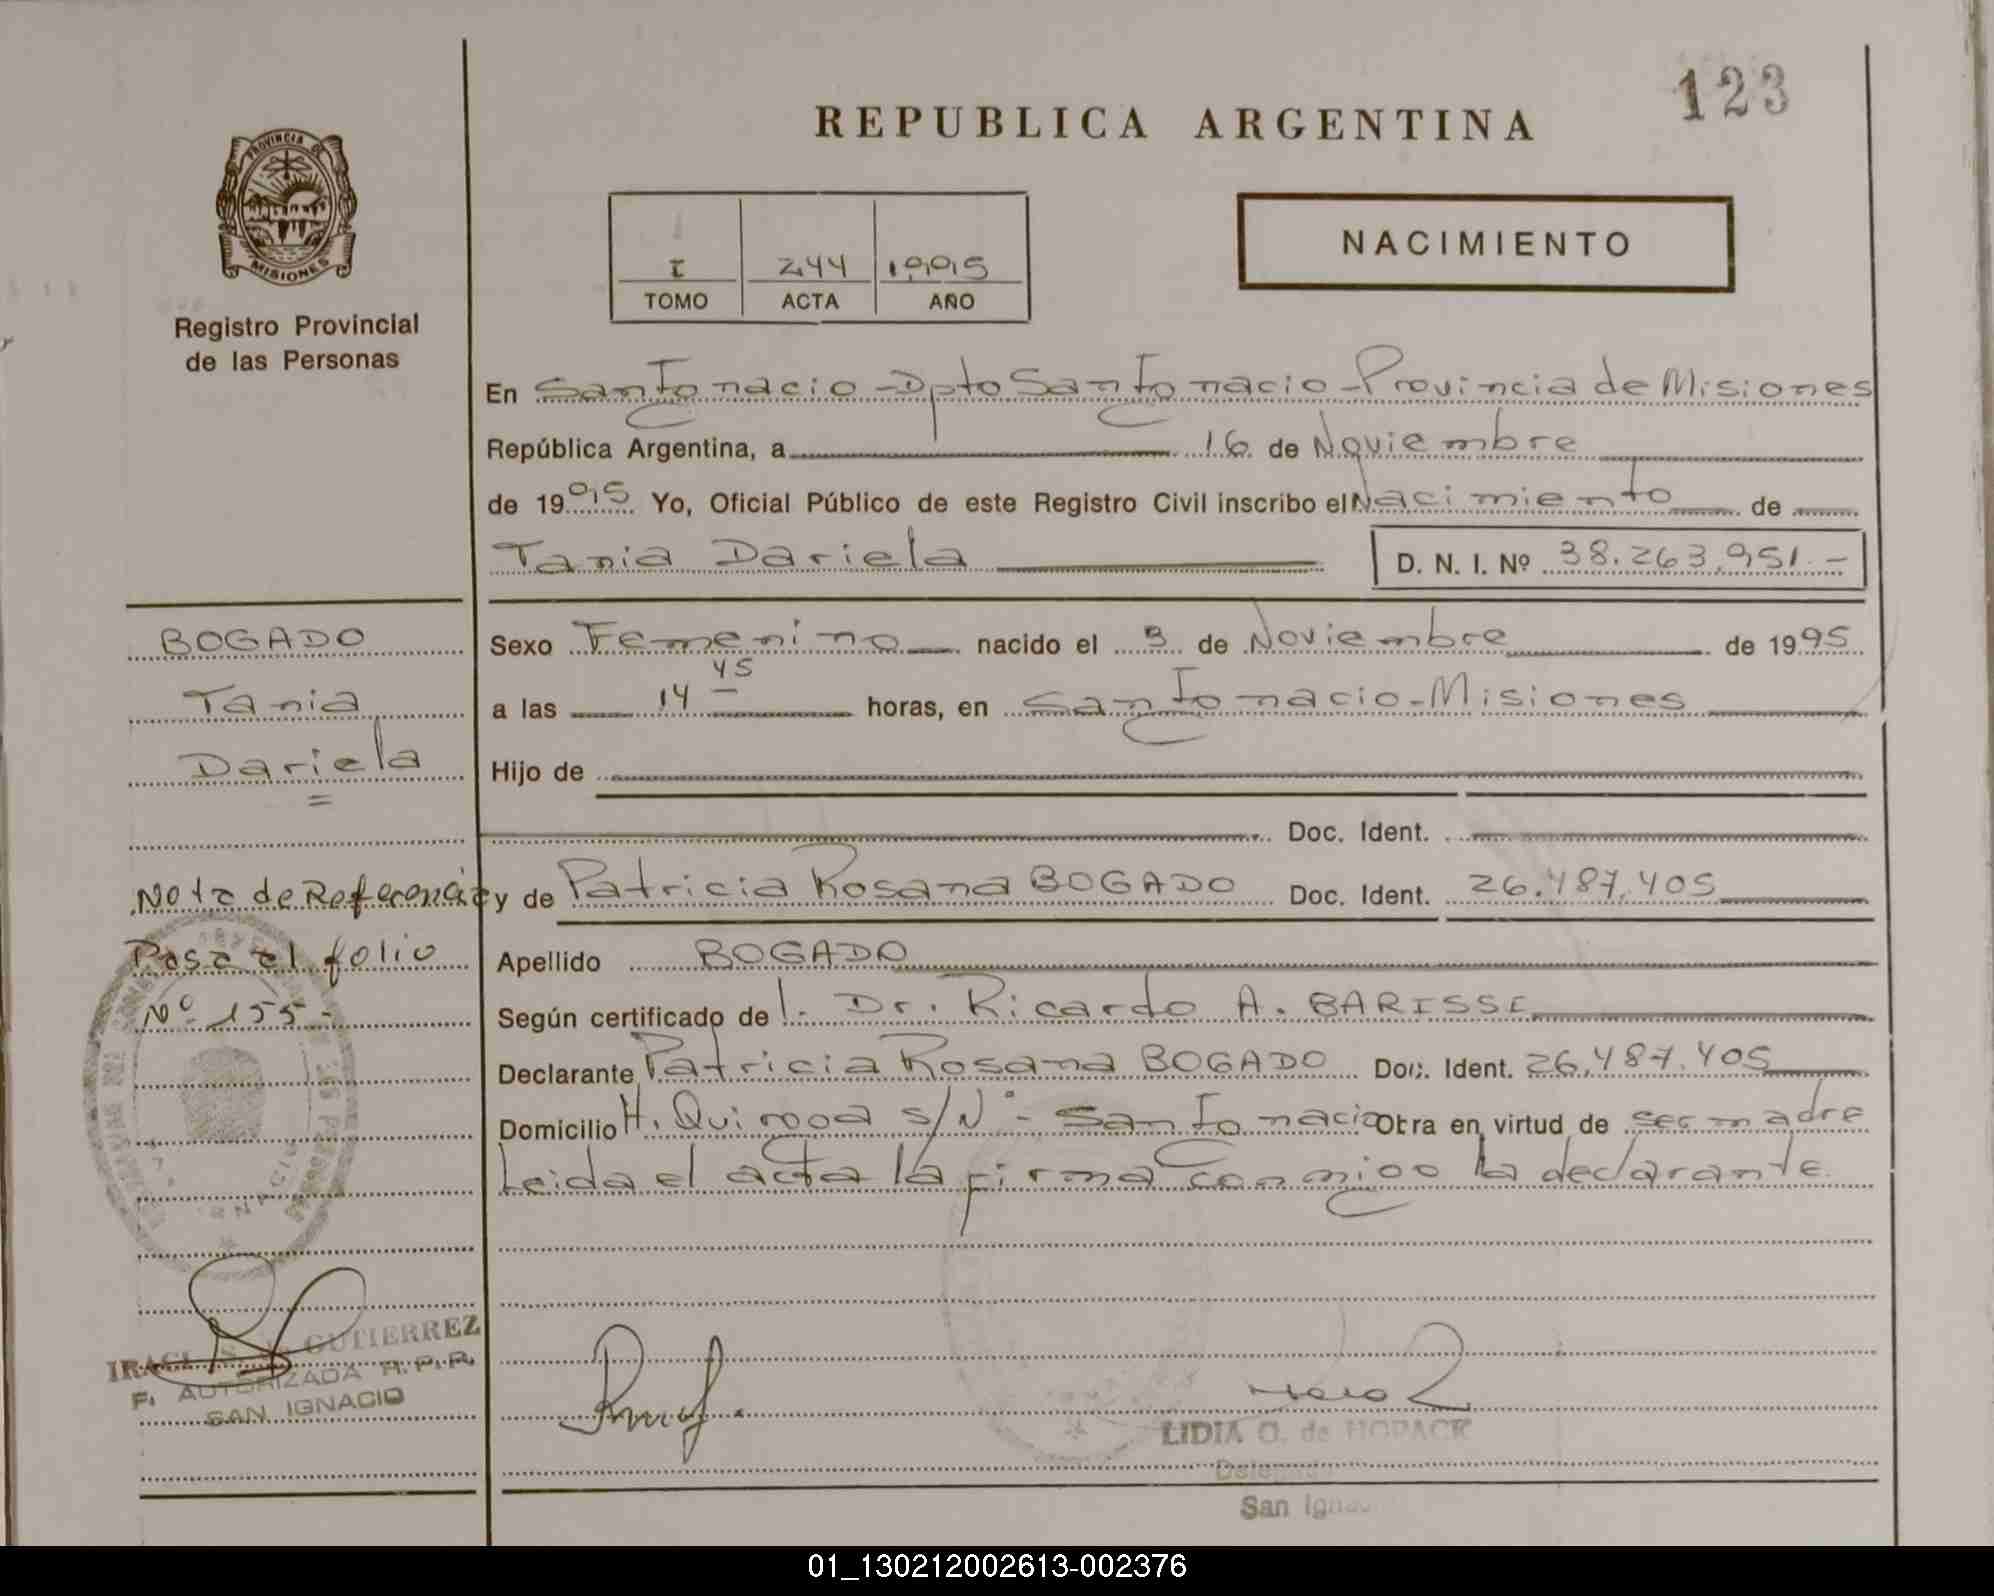 123
REPUBLICA ARGENTINA
PROVINCIA DE
MISIONES
Registro Provincial
de las Personas
I 244 1995
TOMO ACTA AÑO
NACIMIENTO
En San Ignacio - Dpto San Ignacio - Provincia de Misiones
República Argentina, a 16 de Noviembre
de 1995 Yo, Oficial Público de este Registro Civil inscribo el Nacimiento de
Tania Dariela D. N. I. Nº 38.263.951.-
BOGADO
Tania
Dariela
Sexo Femenino nacido el 3 de Noviembre de 1995
a las 14 45 horas, en San Ignacio - Misiones
Hijo de
Doc. Ident.
y de Patricia Rosana BOGADO Doc. Ident. 26.487.405
Apellido BOGADO
Según certificado de l. Dr. Ricardo A. BARISSI
Declarante Patricia Rosana BOGADO Doc. Ident. 26.487.405
Domicilio H. Quiroga s/Nº - San Ignacio Obra en virtud de ser madre
Leida el acta la firma conmigo la declarante
Nota de Referencia
Pasa al folio
Nº 155-
GUTIERREZ
F. AUTORIZADA R.P.P.
SAN IGNACIO
LIDIA O. de HOPACK
San
01_130212002613-002376